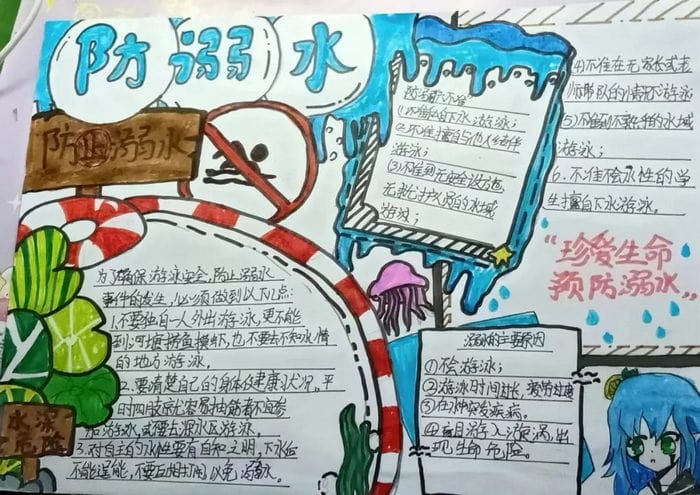 防溺水
防止溺水
为了确保游泳安全,防止溺水
事件的发生,必须做到以下几点:
1.不要独自一人外出游泳,更不能
到河塘捞鱼摸虾,也不要去不知水情
的地方游泳
2.要清楚自己的身体健康状况,平
时四肢就容易抽筋者不宜参
加游泳或不要去深水区游泳。
3.对自己的水性要有自知之明,下水后
不能逞能,不要互相打闹,以免溺水。
水深
危险
防溺水六不准
1.不准私自下水游泳;
2.不准擅自与他人结伴
游泳;
(3)不准到无安全设施、
无救护人员的水域
游泳;
(4)不准在无家长或老
师带队的情况下游泳;
(5)不准到不熟悉的水域
游泳;
6.不准不会水性的学
生擅自下水游泳。
“珍爱生命
预防溺水”
溺水的主要原因
①不会游泳;
②游泳时间过长,疲劳过度
③在水中突发疾病。
④盲目游入漩涡,出
现生命危险。